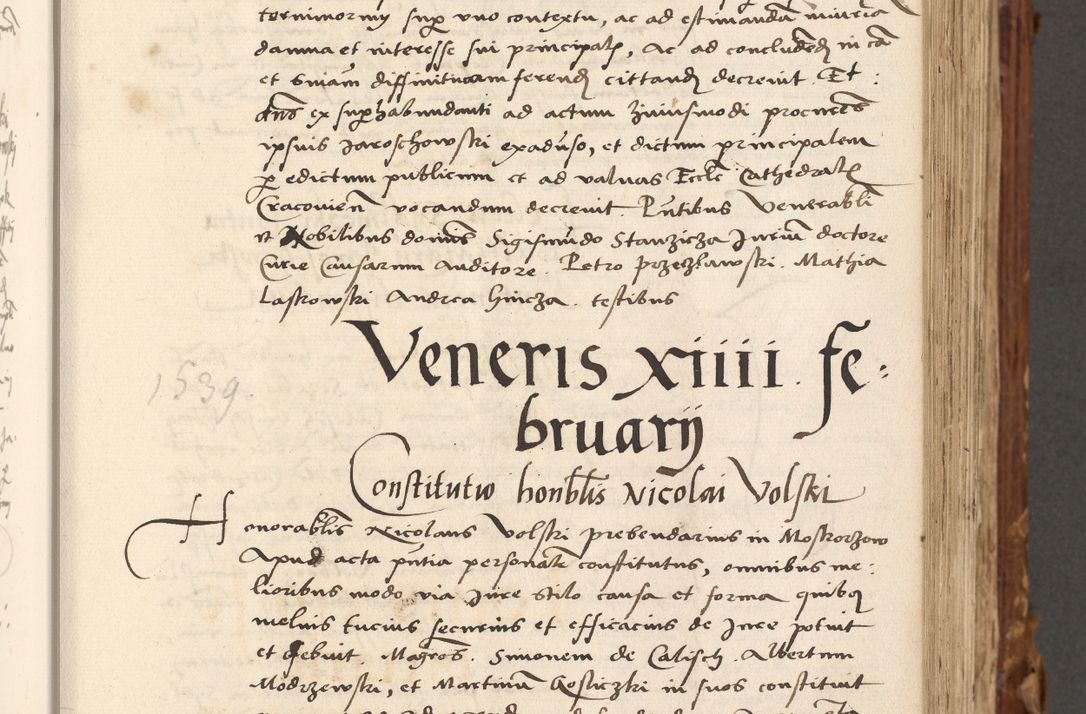 terminorum super uno contextu, ac ad estimandam iniuriā
damna et interesse sui principalis, Ac ad concludendum in cā
et sniam diffinitivam ferendam cittandum decrevit. Et:
dns ex superhabundanti ad actum huiusmodi procures
ipsius Jaroschowski ex adverso, et dictum principalem
p edictum publicum et ad valvas Eccle Cathedralis
Cracovien vocandum decrevit. Pntibus Venerabli
et Nobilibus domis Sigismūdo Stanzicza Juriū doctore
Curie Causarum Auditore. Petro Przeczlawski. Mathia
Laskowski Andrea hincza. testibus
Veneris xiiii. fe:
bruarij
1539.
Constitutio honblis Nicolai Volski
Honorablis Nicolaus Volski prebendarius in Moskorzow
Apud acta pntia personalē constitutus, omnibus me:
lioribus modo via Jure stilo causa et forma quibus
melius tucius securius et efficacius de Jure potuit
et debuit. Magros. Simonem de Calisch. Albertum
Modrzewski, et Martinū Gosliczki in suos constituit